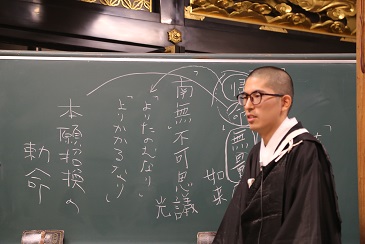 帰命
無量
如来
南無不可思議
光
「よりたのむなり」
「よりかかるなり」
本願招換の
勅命